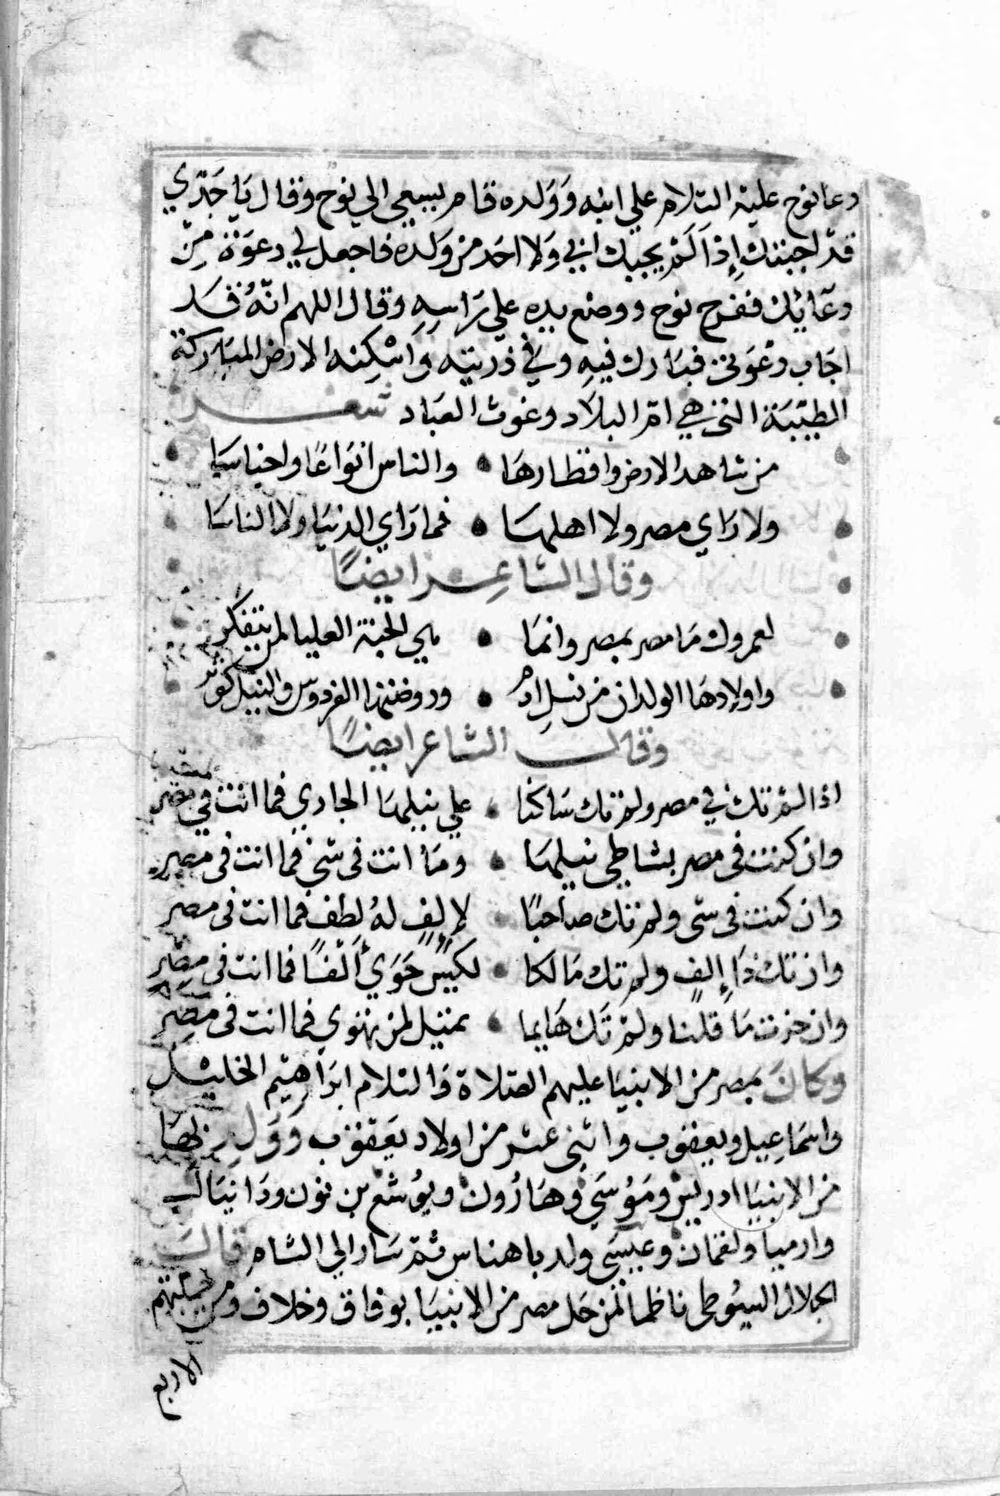 دعا نوح عليه السلام علي ابنه وَوَلده قام يسعي الي نوح وقال يَا جَدّي
قد اجبتك إِذ اَلَمْ يجبك ابي وَلا احَد من وَلده فاجعل لي دعوَة مِن
دعَآيك ففرح نوح ووضع يده علي رَاسِهِ وقال اللهم انّهُ قَد
اجَاب دعْوَتي فبَارك فيهِ وفي ذريته وَاسْكِنه الارض المبَاركة
الطيّبَة التي هي امّ البلَاد وغوث العبَاد شعر
من شاهد الارض واقطارهَا والناس انوَاعًا واجناسَا
ولا رَاي مصر ولا اهلهَا فما رَاي الدنيَا ولا الناسَا
وقال الشاعر ايضًا
لعمرك مَا مصر بمصر وانمَا هي الجنة العليا لمن يتفكر
واولادهَا الولدان من نسلِ ادم وروضتها الفردوس والنيل كوثر
وقال الشاعر ايضًا
اذا لمْ تك في مصر ولمْ تك سَاكنا علي نيلهَا الجاري فما انت في مصر
وان كنت في مصر بشاطي نيلهَا ومَا انت في شي فما انت في مصر
وان كنت في شي ولم تك صاحبًا لإلفٍ لهُ لطف فما انت في مصر
وان تك ذَا إلفٍ ولم تك مَالكا لكيسٍ حَوَي اَلْفًا فما انت في مصْرِ
وان حزت مَا قلنا ولمْ تَك هَايما بميل لمن تهوي فما انت في مصْرِ
وكانَ بمصر من الانبيَا عليهم الصّلاة وَالسّلام ابرَاهيْم الخليْل
واسْمَاعِيل ويعقوب واثني عشر من اولاد يَعقوب وَوَلد بهَا
من الانبيَا ادريْس ومَوُسَي وهَارُون ويُوشعْ بن نون ودَانيَال
وارميا ولقمان وعيسَي ولد باهناس ثمّ سَار الي الشام قال
الجلال السيُوطي ناظما لمن حَل مصر من الانبيَا بوفاق وخلاف ومن
الاربع